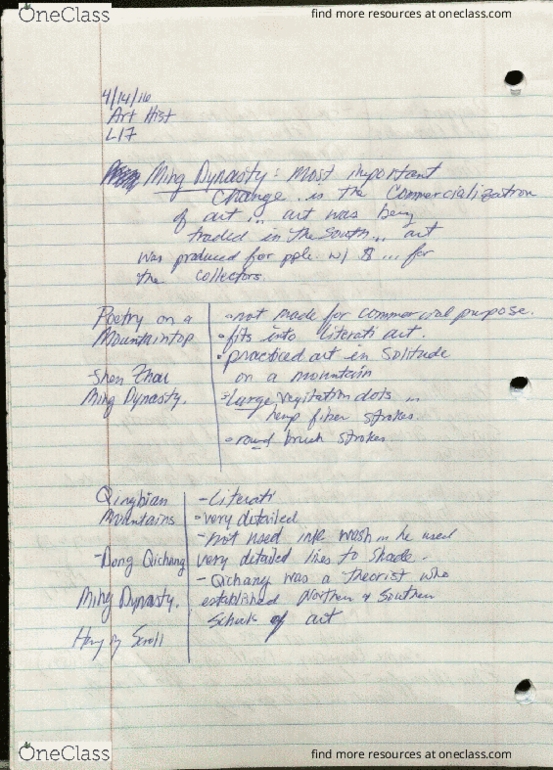 OneClass
find more resources at oneclass.com
4/14/16
Art Hist
L17
Ming Dynasty: Most important
Change is the Commercialization
of art... art was being
traded in the South... art
was produced for pple w/ $ ... for
the collectors.
Poetry on a
Mountaintop
- Shen Zhou
Ming Dynasty.
- not made for commercial purpose.
- fits into literati art.
- practiced art in Solitude
on a mountain
- large vegitation dots ...
hemp fiber strokes.
- round brush strokes.
Qingbian
Mountains
- Dong Qichang
Ming Dynasty.
Scroll
- Literati
- very detailed
- not used ink wash he used
very detailed lines to shade.
- Qichang was a theorist who
established Northern & Southern
of art
OneClass
find more resources at oneclass.com